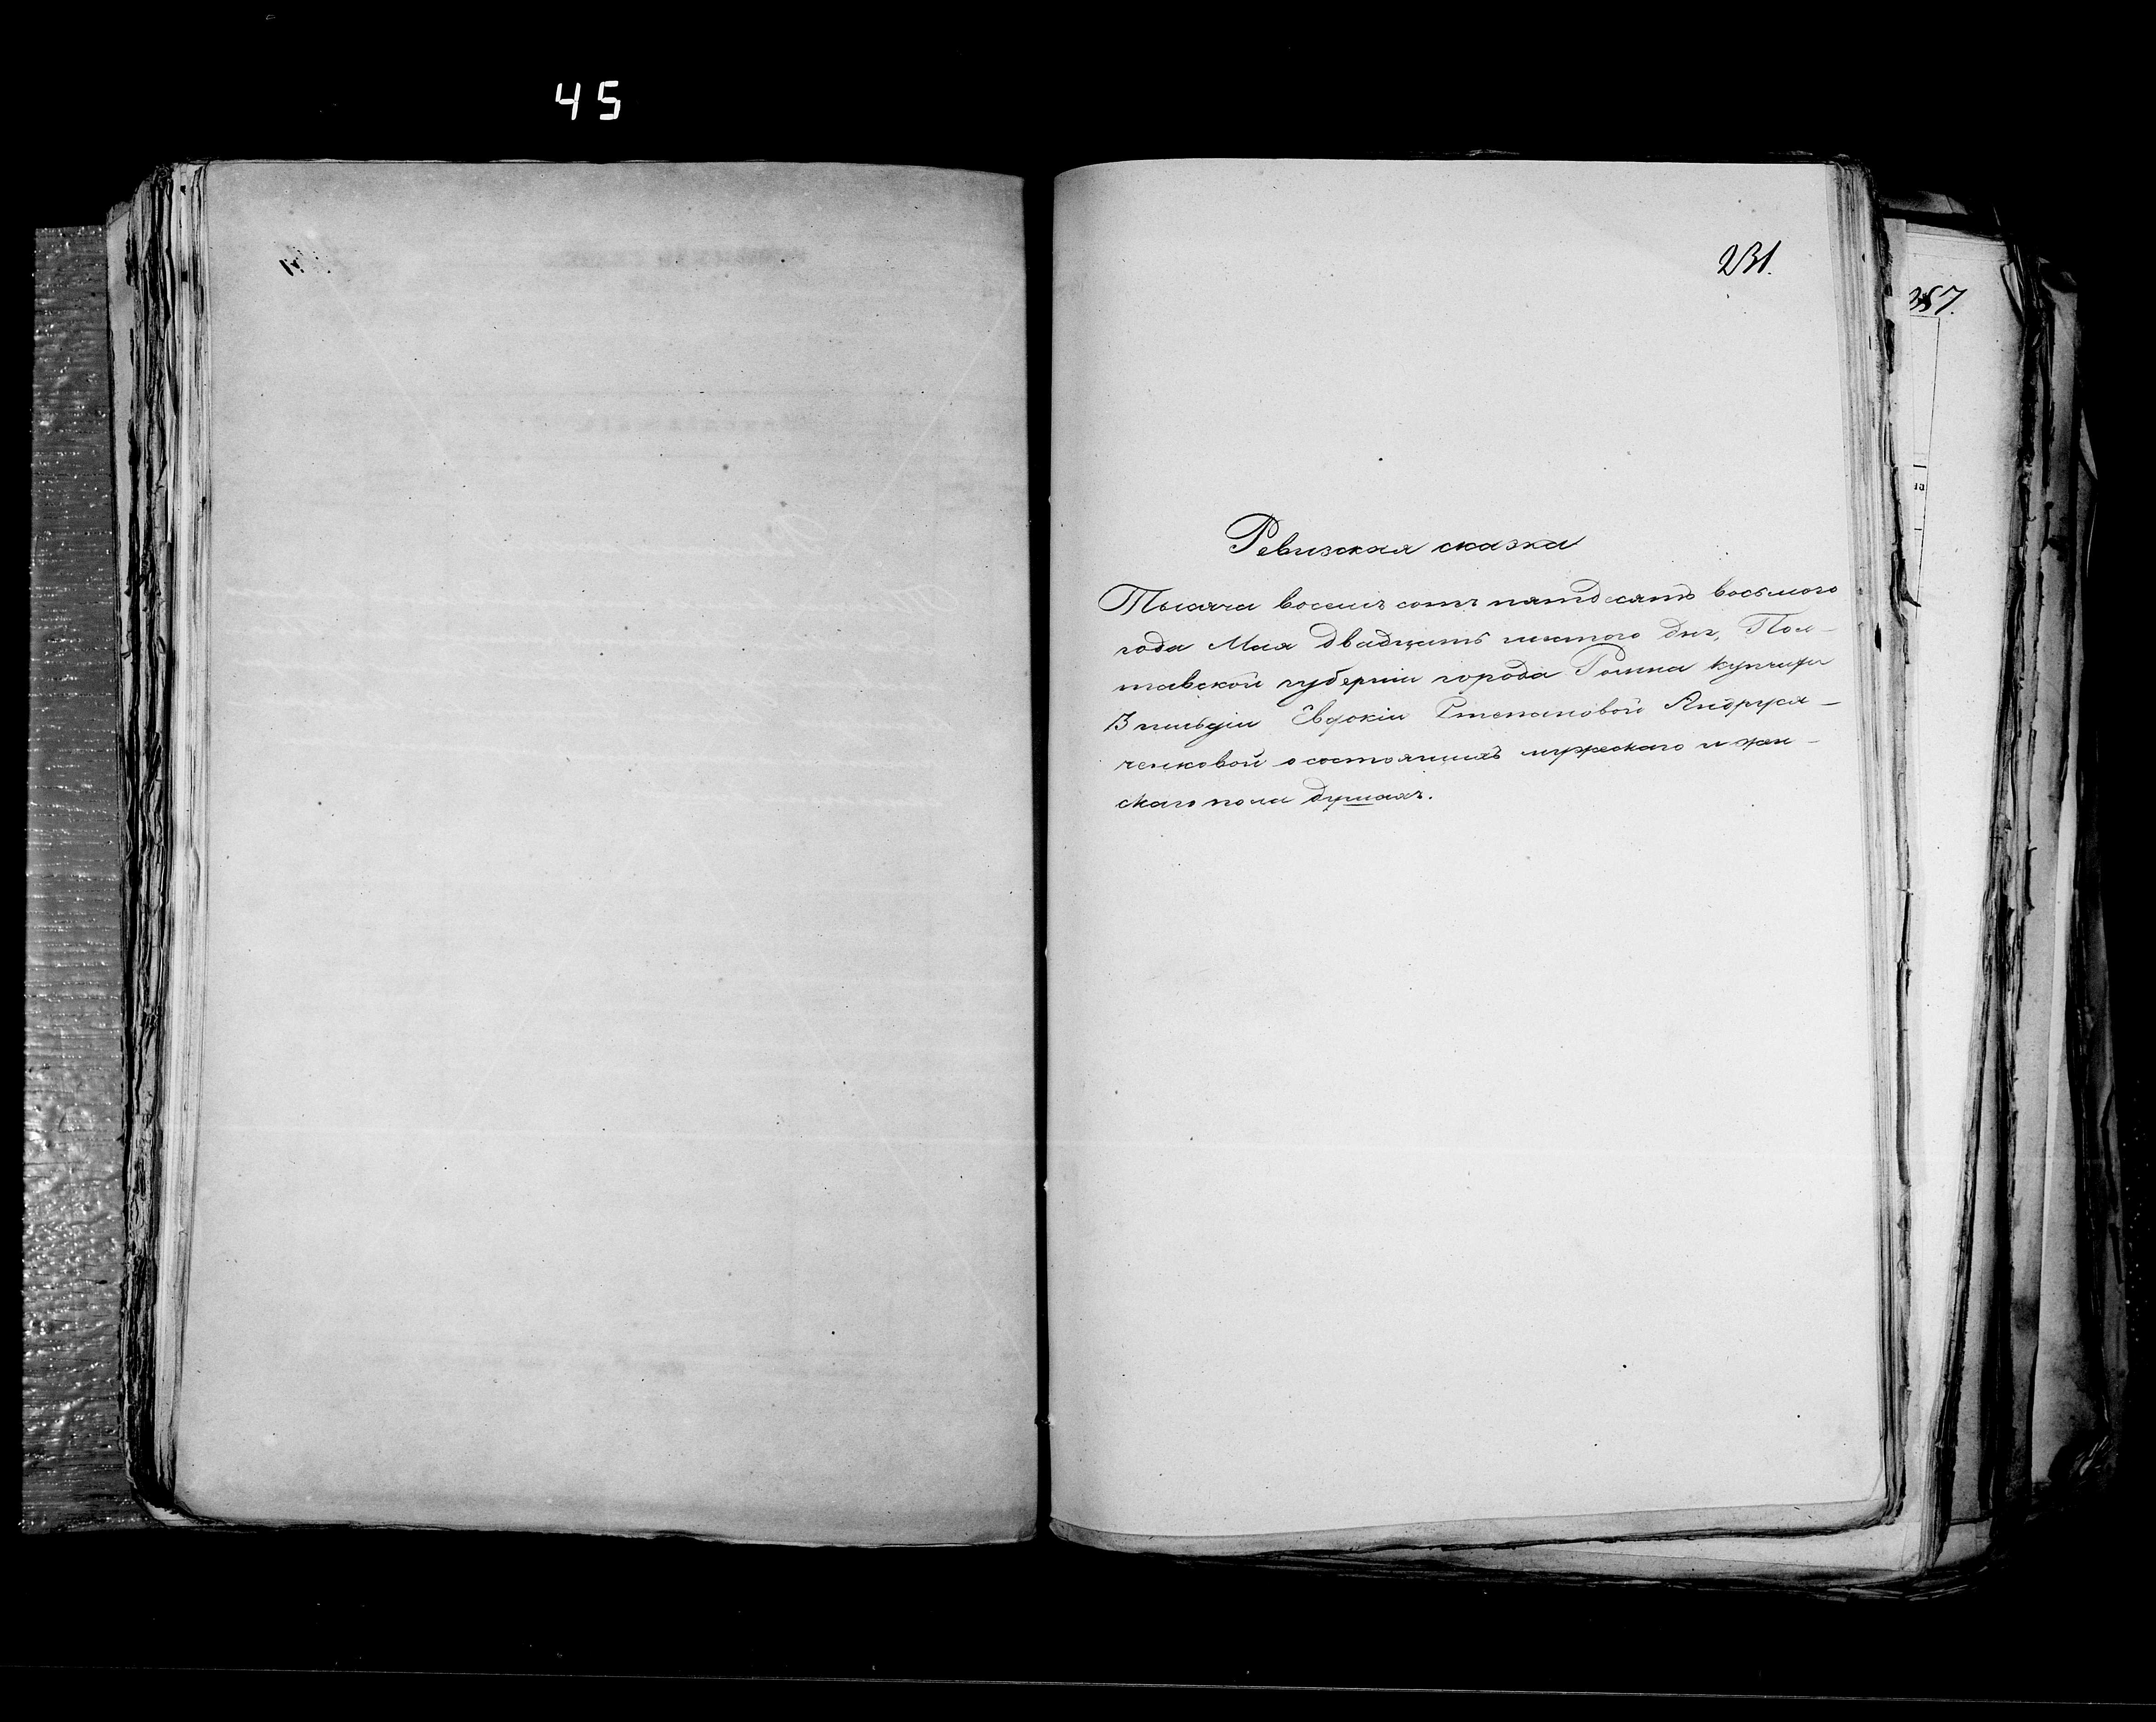 45
231.
357.
Ревизская сказка
Тысяча восемь сотъ пятдесятъ восьмого
года Мая двадцать шестого дня, Пол-
тавской губерніи города Ромна купчихи
3 гильдіи Евдокіи Степановой Андруся-
ченковой о состоящихъ мужескаго и жен-
скаго пола душахъ.